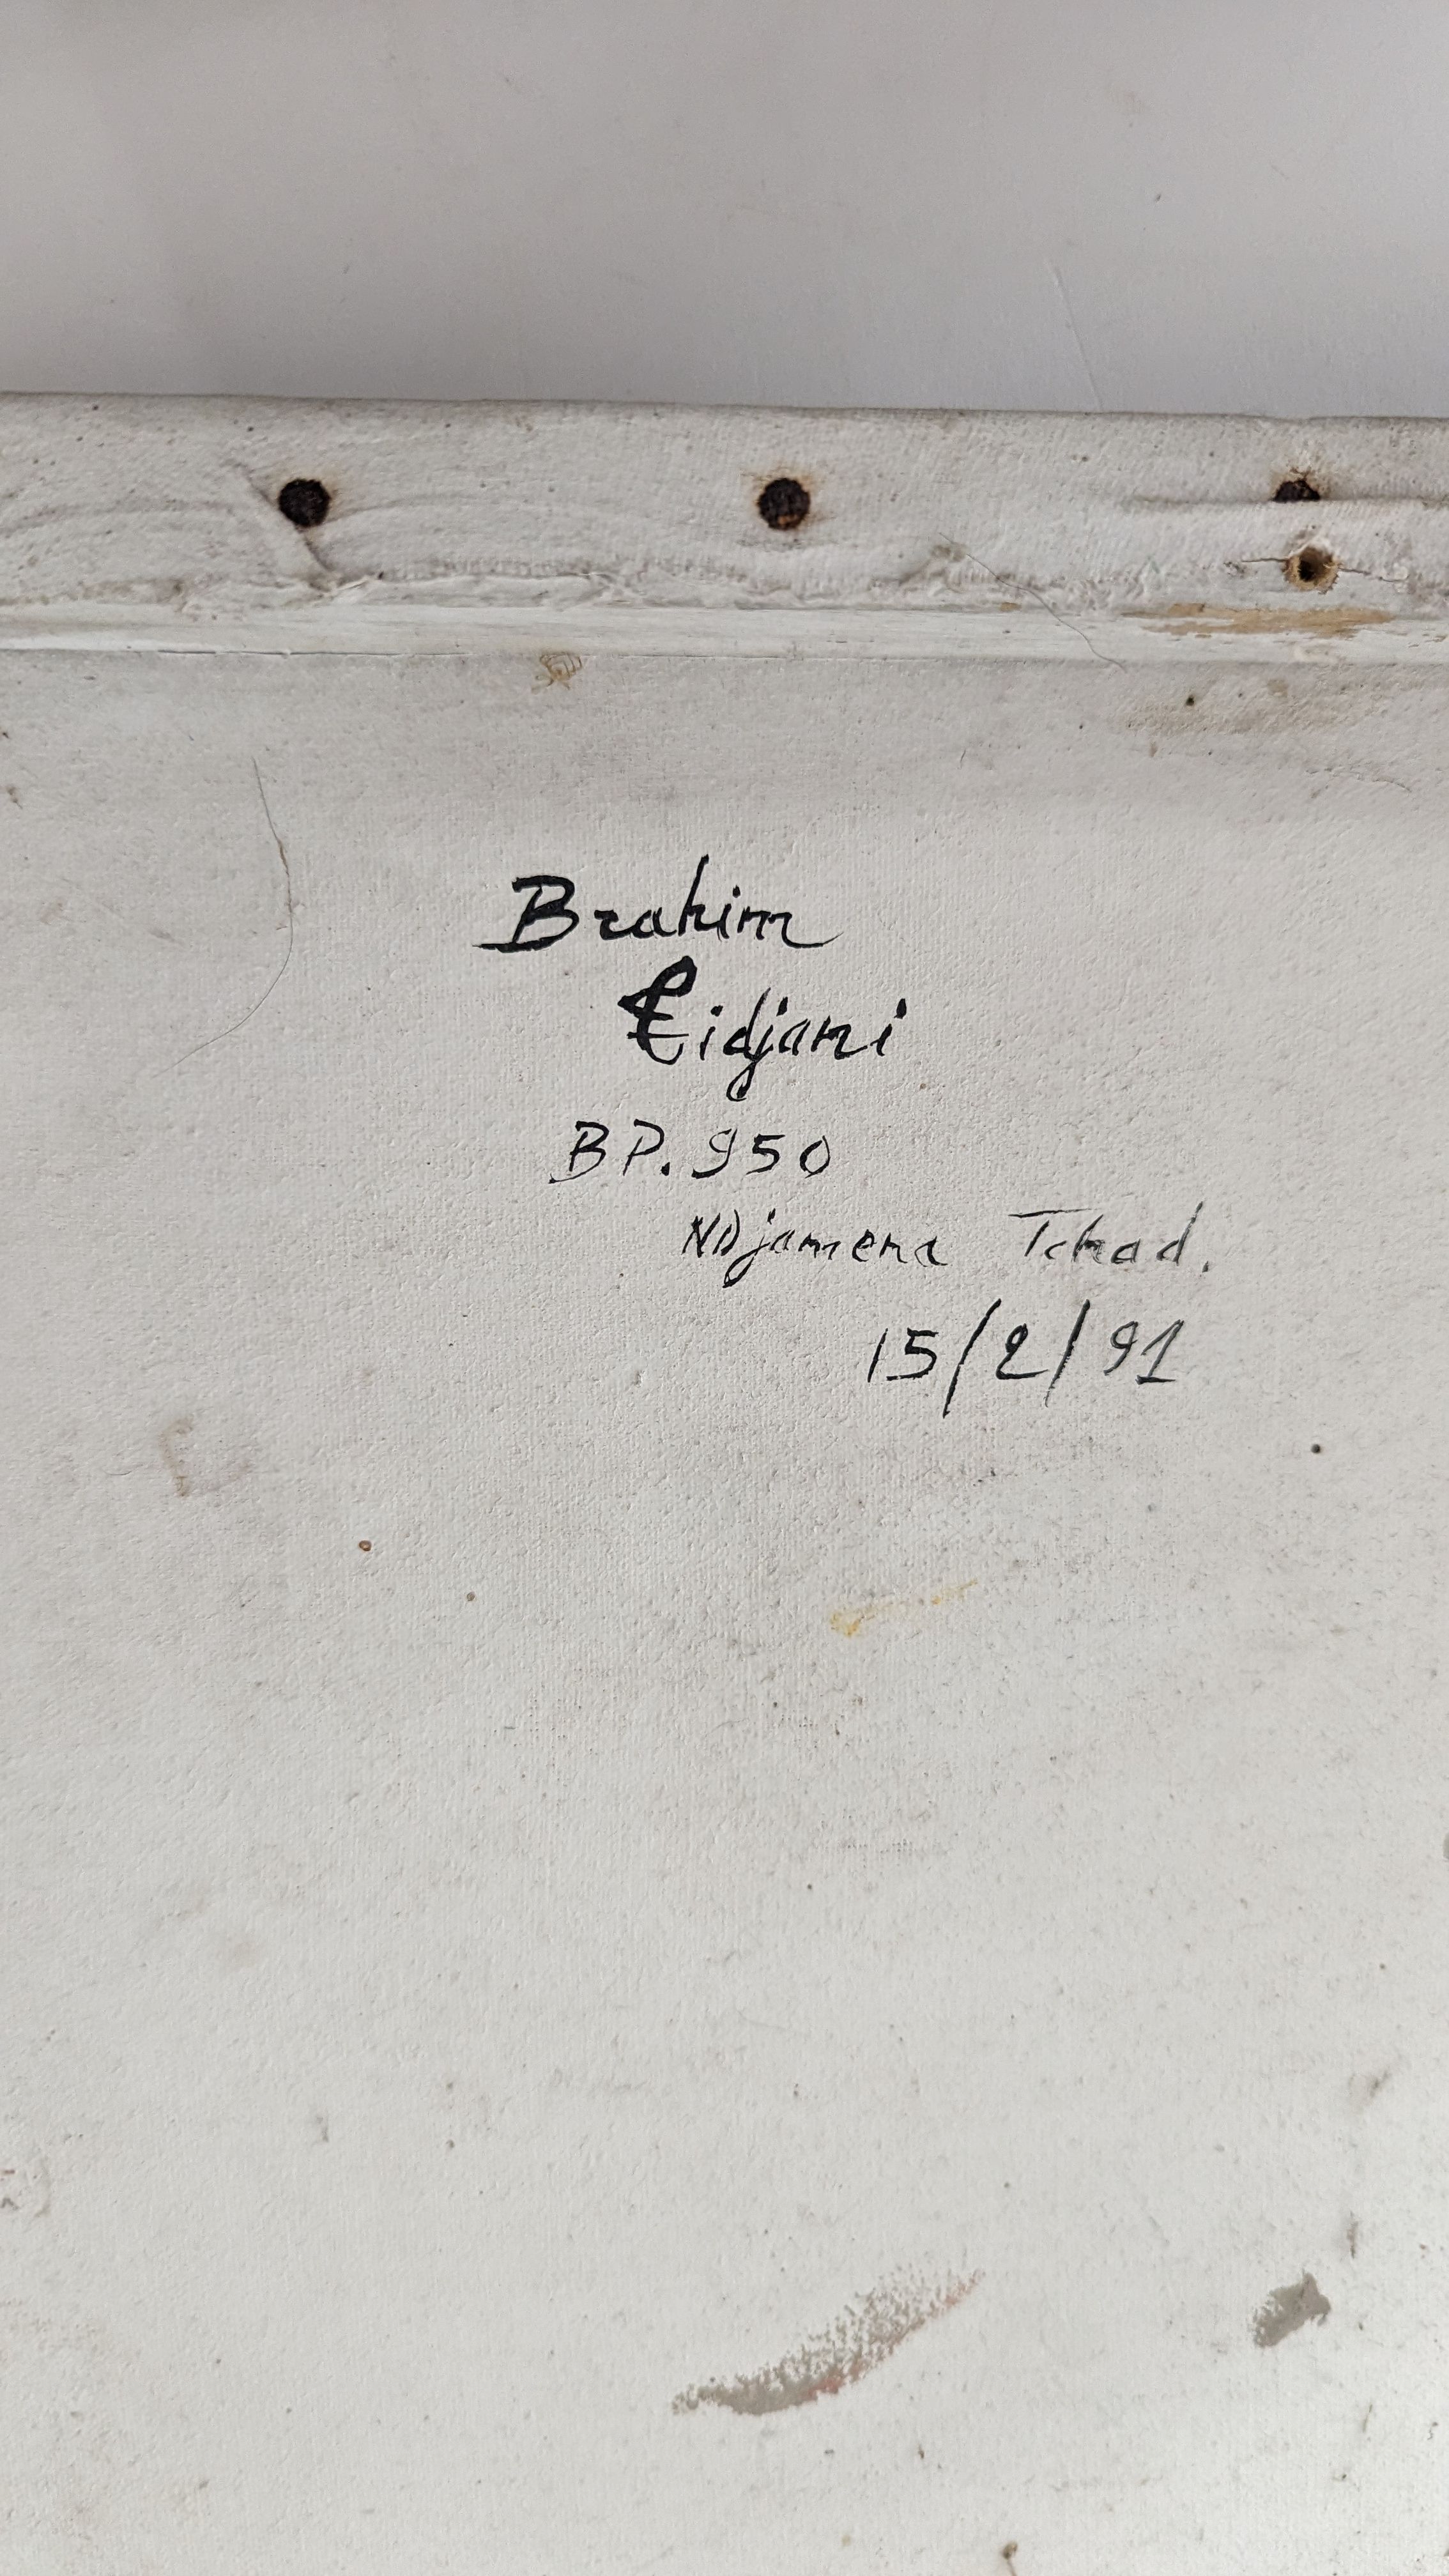 Brahim
Tidjani
BP. 950
NDjamena Tchad.
15/2/91